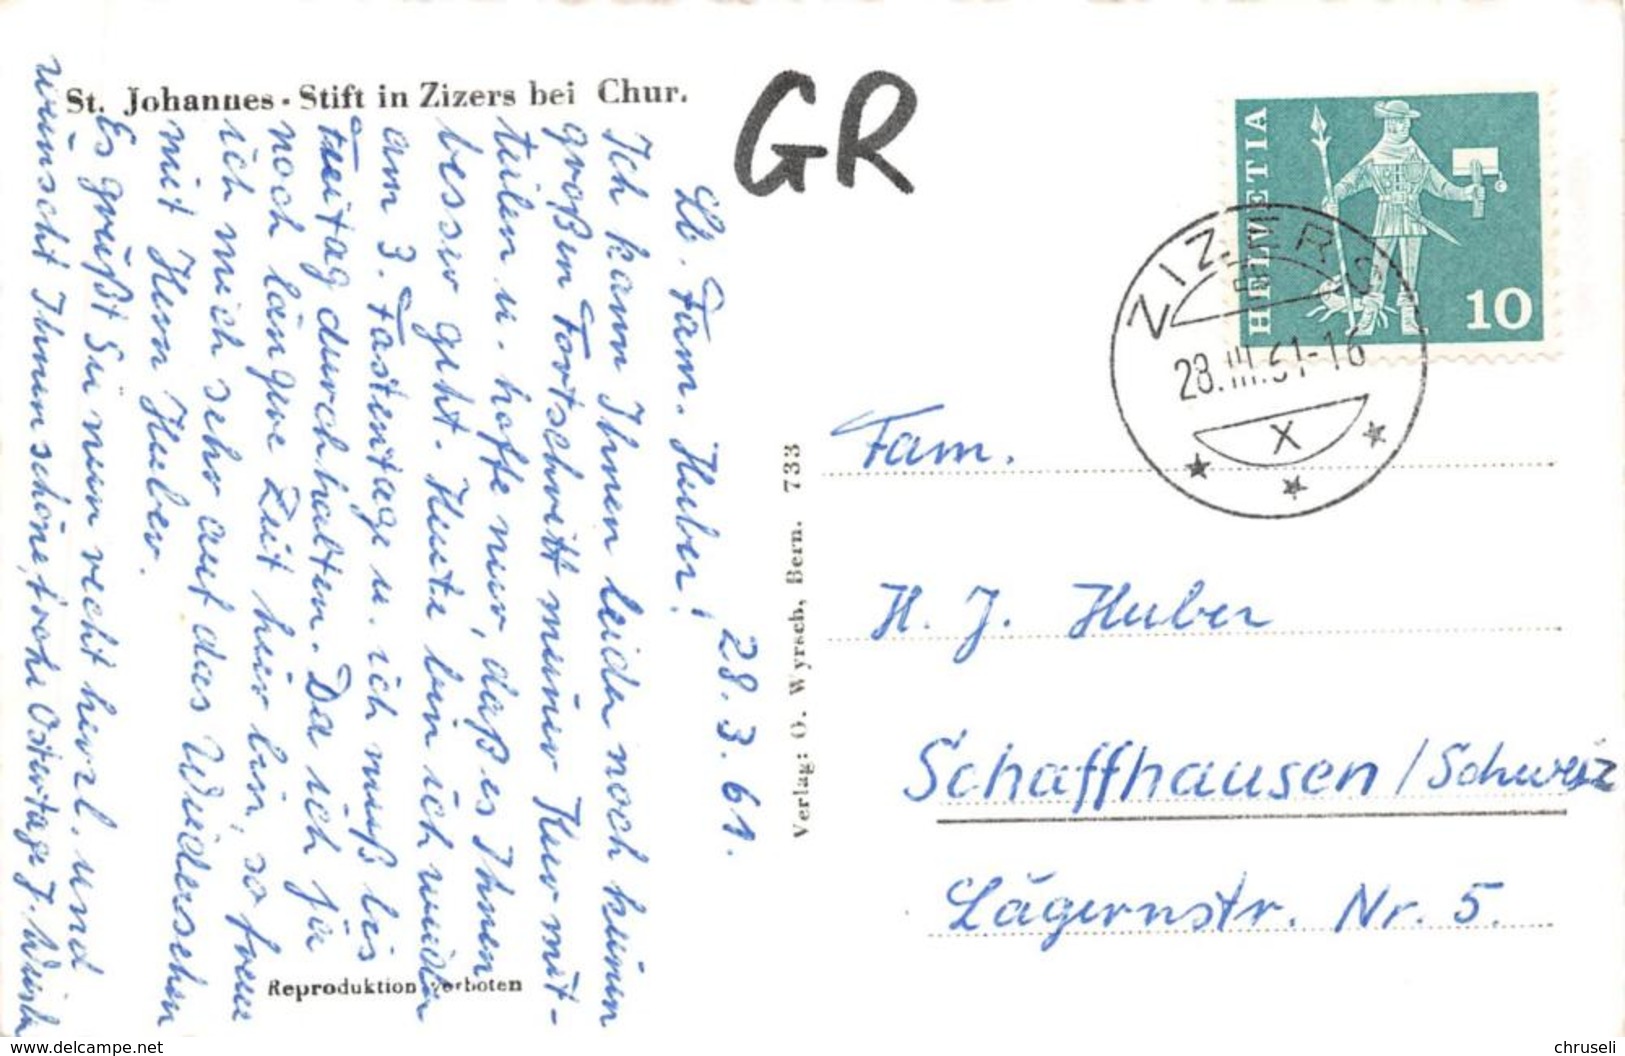 St. Johannes-Stift in Zizers bei Chur.
GR
HELVETIA
10
ZIZERS
28.III.61-16
X
28. 3. 61.
Lb. Fam. Huber!
Ich kann Ihnen leider noch keinen
großen Fortschritt meiner Kur mit-
teilen u. hoffe nur, daß es Ihnen
besser geht. Heute bin ich wieder
am 3. Fastentage u. ich muß bis
Freitag durchhalten. Da ich ja
noch längere Zeit hier bin, so freue
ich mich sehr auf das Wiedersehen
mit Herrn Huber.
Es grüßt Sie nun recht herzl. und
wünscht Ihnen schöne, frohe Ostertage J.
Verlag: O. Wyrsch, Bern. 733
Fam.
H. J. Huber
Schaffhausen / Schweiz
Lägernstr. Nr. 5.
Reproduktion verboten
www.delcampe.net
chruseli